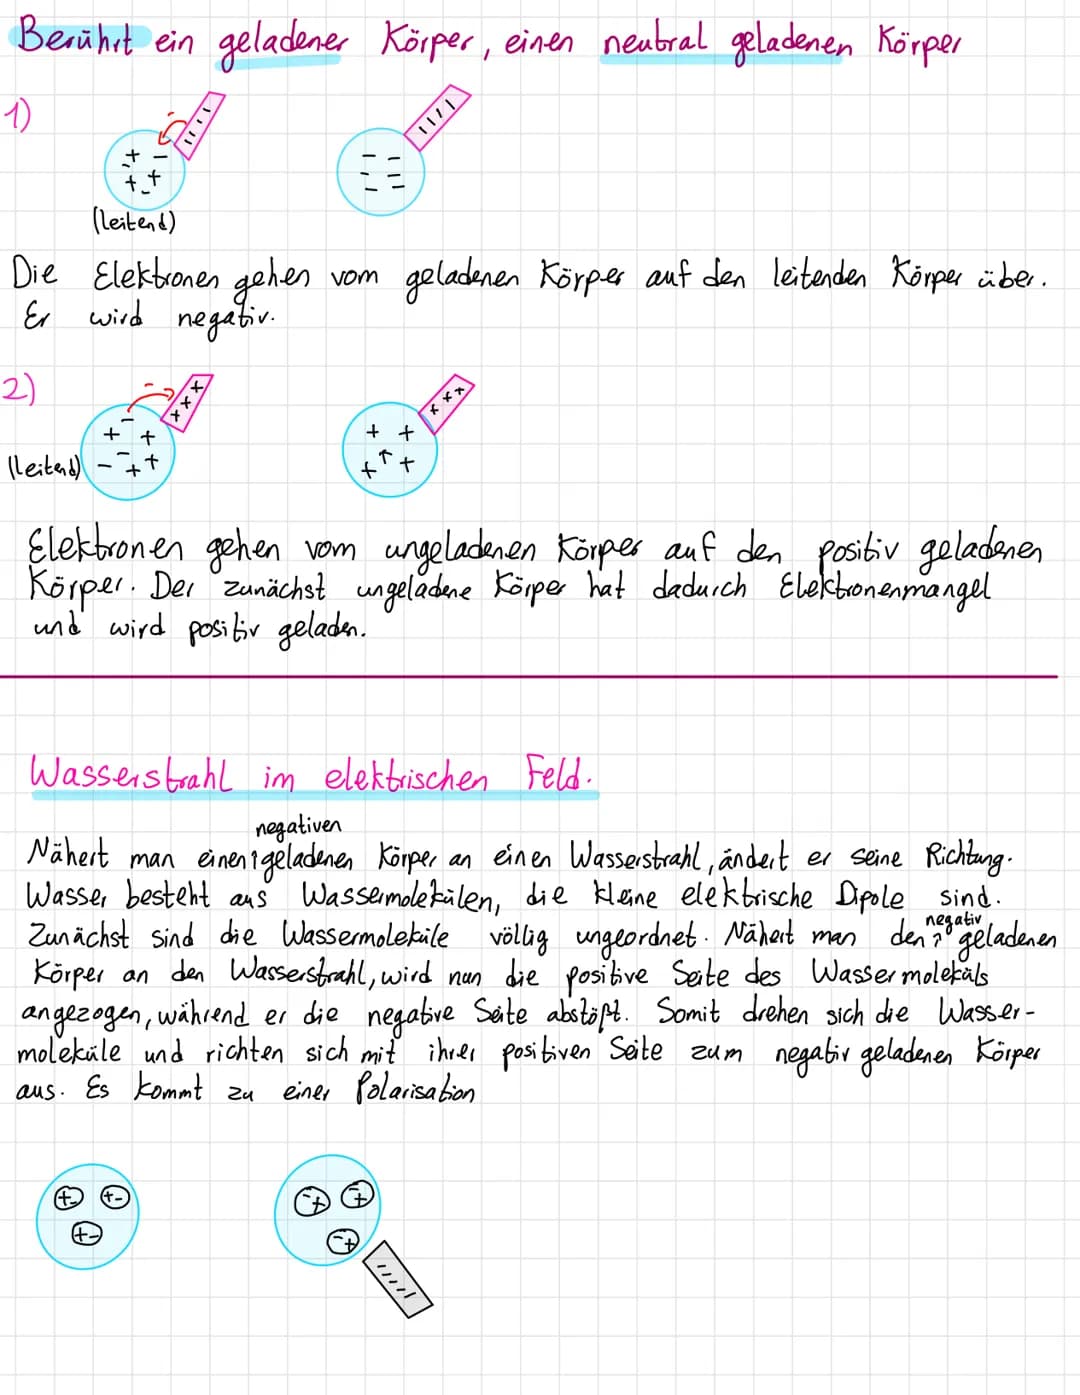 Berührt ein geladener Körper, einen neutral geladenen Körper
1)
(leitend)
Die Elektronen gehen vom geladenen Körper auf den leitenden Körper über.
Er wird negativ.
2)
(leitend)
Elektronen gehen vom ungeladenen Körper auf den positiv geladenen
Körper. Der zunächst ungeladene Körper hat dadurch Elektronenmangel
und wird positiv geladen.
Wasserstrahl im elektrischen Feld.
negativen
Nähert man einen geladenen Körper an einen Wasserstrahl, ändert er seine Richtung.
Wasser besteht aus Wassermolekülen, die kleine elektrische Dipole sind.
negativ
Zunächst sind die Wassermoleküle völlig ungeordnet. Nähert man den geladenen
Körper an den Wasserstrahl, wird nun die positive Seite des Wassermoleküls
angezogen, während er die negative Seite abstößt. Somit drehen sich die Wasser-
moleküle und richten sich mit ihrer positiven Seite zum negativ geladenen Körper
aus. Es kommt zu einer Polarisation